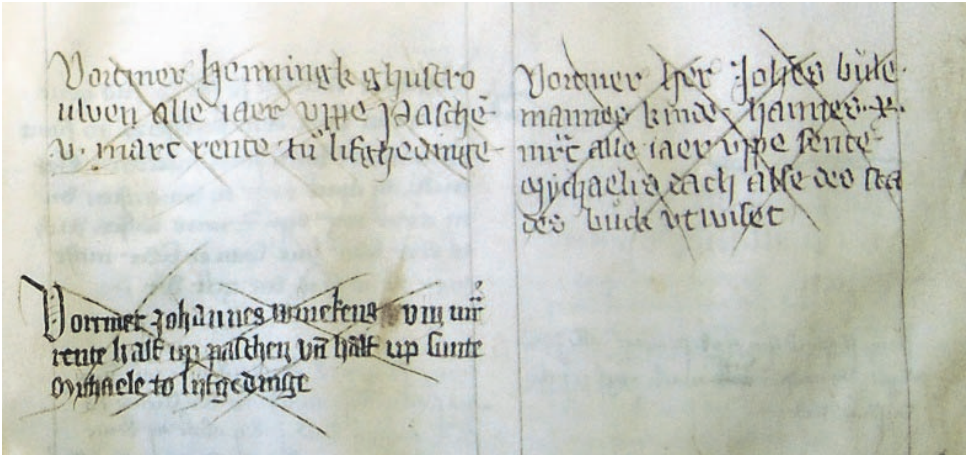 Vortmer Henningk ghustro
ulven alle iaer vppe Paschē
v. marc rente tů lifghedinge
Vortmer Johannes winekens viii mr̄
rente half up paschen vn̄ half up sunte
Mychaele to lifgedinge
Vortmer her Johēs bůle
mannes kinde hannes x.
mr̄c alle iaer vppe sente
Mychaelis dach alse des sta
des bůck vtwiset